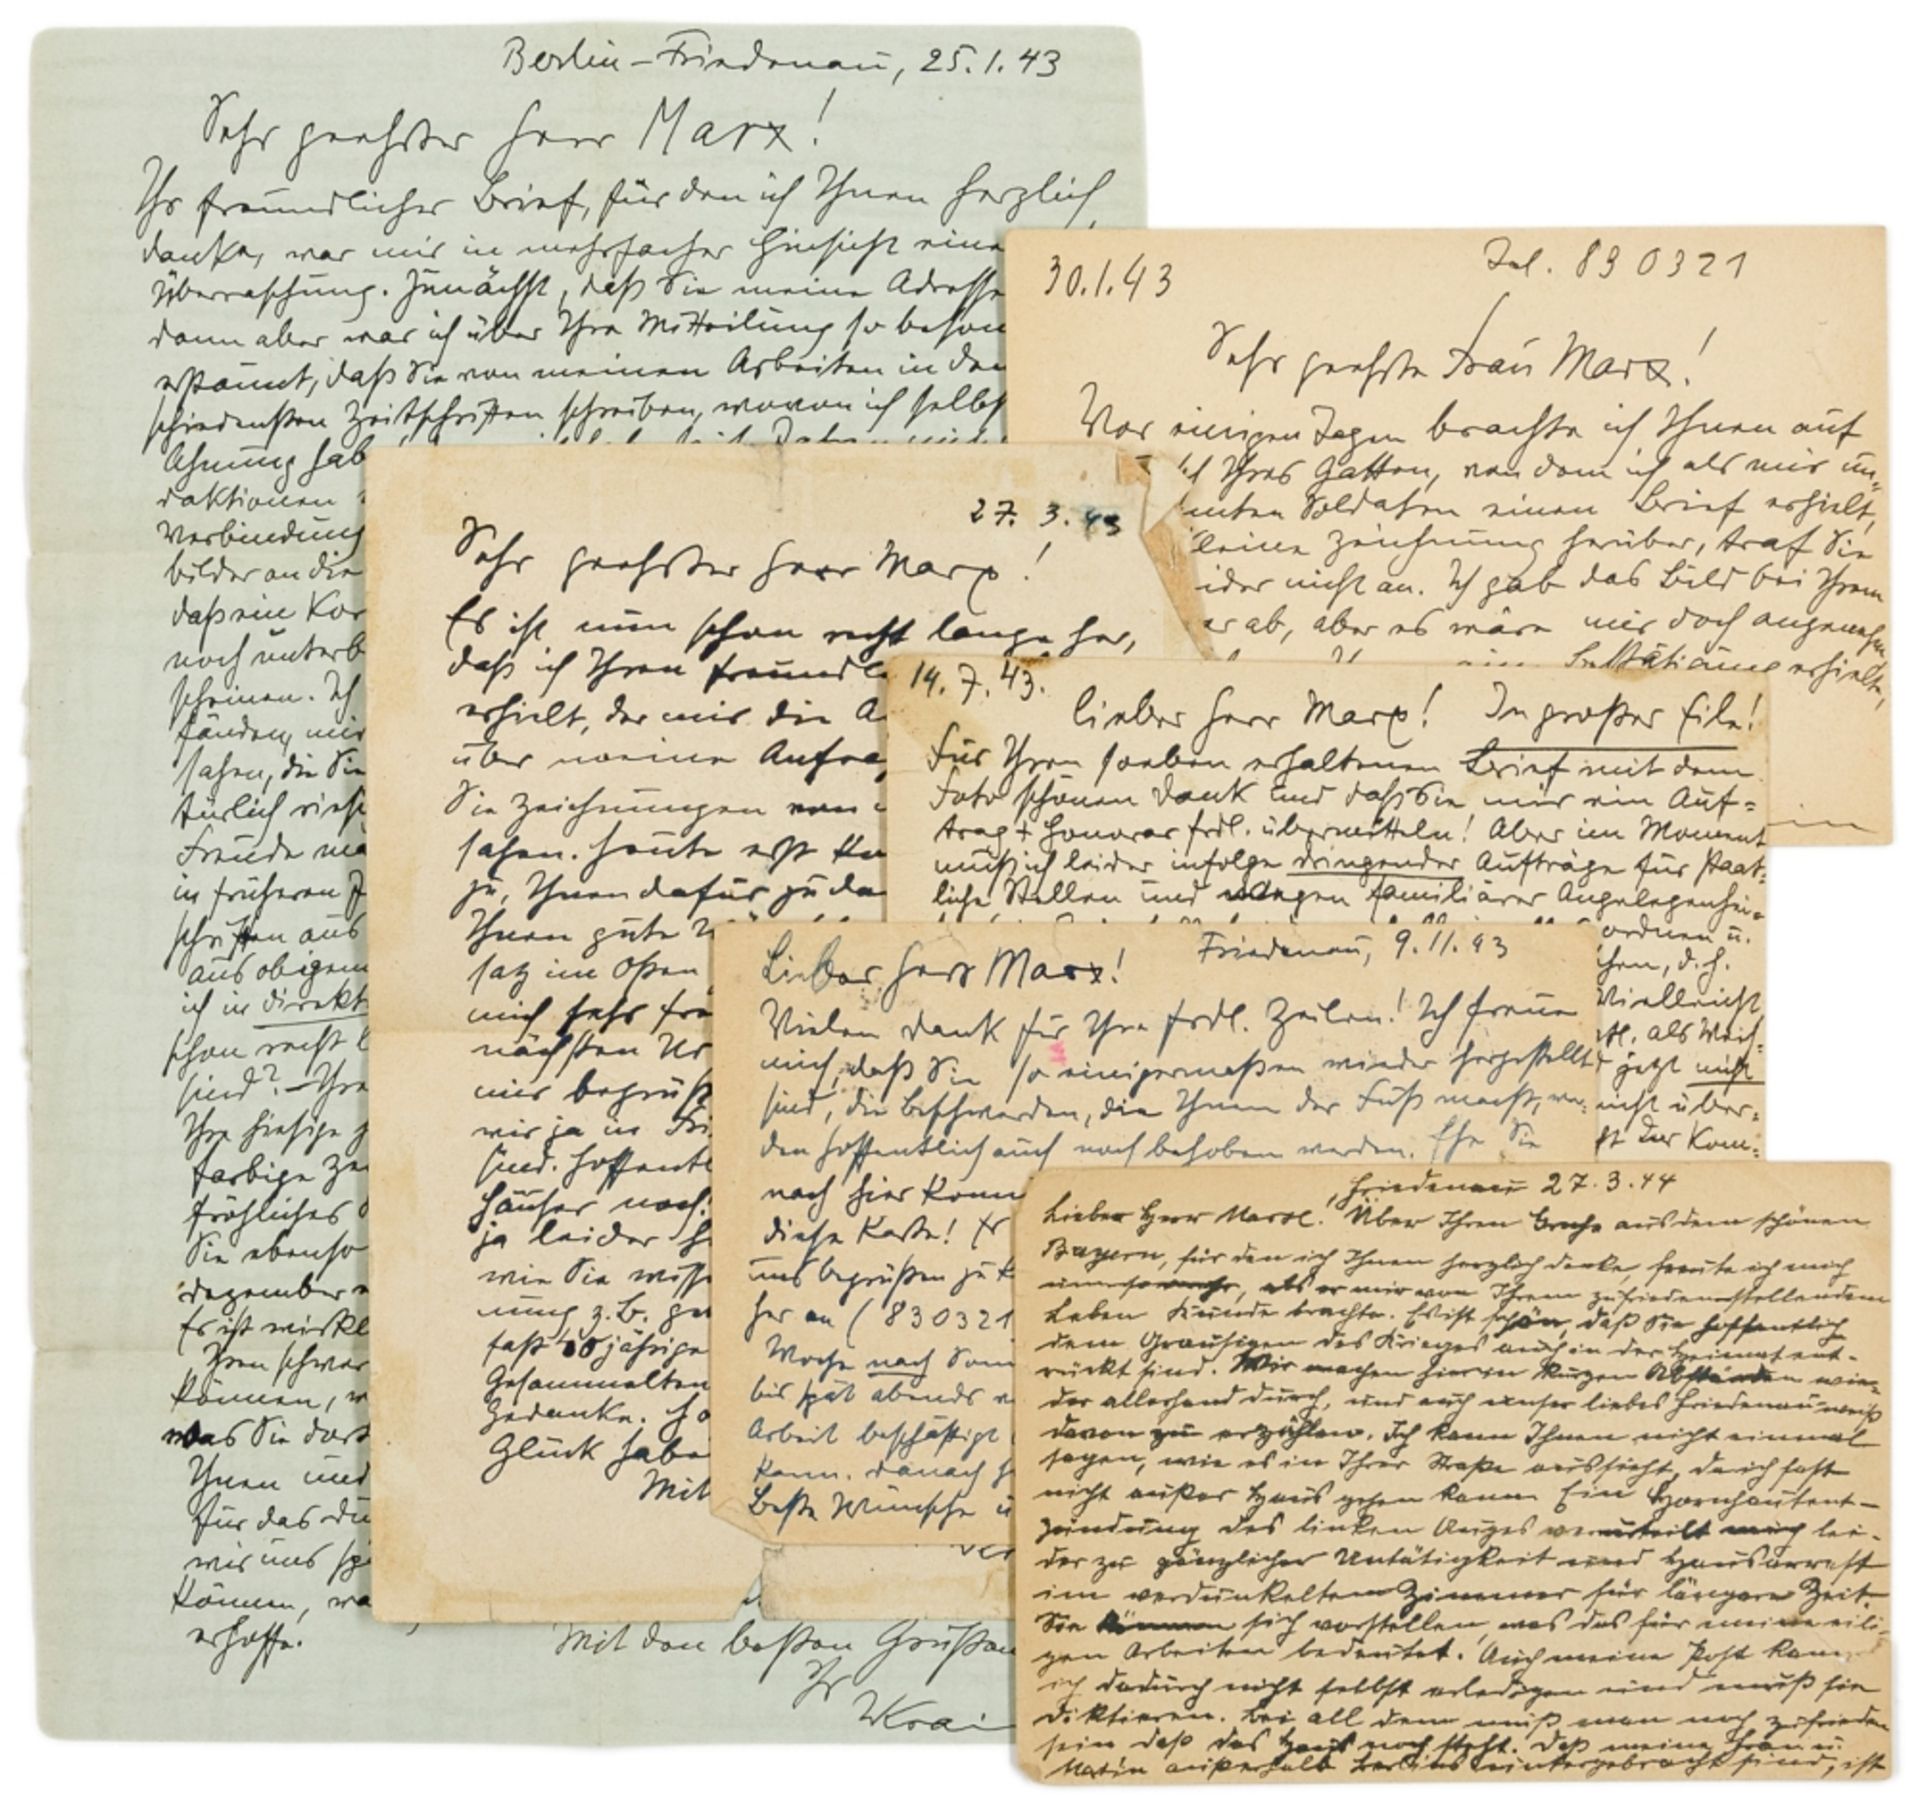 Berlin-Friedenau, 25.1.43
Sehr geehrter Herr Marx!
Ihr freundlicher Brief, für den ich Ihnen herzlich
danke, war mir in mehrfacher Hinsicht eine
Überraschung. Zunächst, daß Sie meine Adresse
dann aber war ich über Ihre Mitteilung so beson
erstaunt, daß Sie von meinen Arbeiten in den
schiedensten Zeitschriften schreiben, wovon ich selbst
Ahnung hab
daktionen
Verbindung
bilder an die
daß ein Kor
noch unterb
scheinen. Ich
fänden, mir
sahen, die Sie
türlich riesi
Freude ma
in früheren Z
schriften aus
aus obigem
ich in direkt
schon recht l
sind? – Ihre
Ihre hiesige
farbige Ze
fröhliches
Sie ebenso
dezember
Es ist wirkl
Ihren schwer
können, w
was Sie dort
Ihnen und
für das Du
wir uns spä
können, wa
erhoffe.
Mit den besten Grüßen
Ihr
WKrai
30.1.43
Tel. 830321
Sehr geehrte Frau Marx!
Vor einigen Tagen brachte ich Ihnen auf
Ihres Gatten, von dem ich als mir un-
nnten Soldaten einen Brief erhielt,
eine Zeichnung herüber, traf Sie
ider nicht an. Ich gab das Bild bei Ihrem
er ab, aber es wäre mir doch angenehm
Bestätigung erhielte,
27. 3. 43
Sehr geehrter Herr Marx!
Es ist nun schon recht lange her,
daß ich Ihren freundl
erhielt, der mir die A
über meine Anfrag
Sie Zeichnungen von
sahen. Heute erst ko
zu, Ihnen dafür zu da
Ihnen gute W
satz im Osten
mich sehr fre
nächsten Ur
mir begrüß
wir ja in Fri
sind. Hoffentl
Häuser noch
ja leider h
wie Sie wiss
nung z.B. ga
fast 40jährige
Gesammelten
Gedanke. Ho
Glück habe
Mit
14. 7. 43.
Lieber Herr Marx! In großer Eile!
Für Ihren soeben erhaltenen Brief mit dem
Foto schönen Dank und daß Sie mir ein Auf-
trag + Honorar frdl. übermitteln! Aber im Moment
muß ich leider infolge dringender Aufträge für staat-
liche Stellen und wegen familiärer Angelegenhei-
ordnen u.
chen, d.h.
Vielleicht
tl. als Weih-
jetzt nicht
nicht über-
ft der Kom-
Friedenau, 9.11.43
Lieber Herr Marx!
Vielen Dank für Ihre frdl. Zeilen! Ich freue
mich, daß Sie so einigermaßen wieder hergestellt
sind, die Beschwerden, die Ihnen der Fuß macht, wer-
den hoffentlich auch noch behoben werden. Ehe Sie
nach hier komm
diese Karte! Er
uns begrüßen zu k
her an (830321
Woche nach Son
bis spät abends
Arbeit beschäftigt
kann. Danach
Beste Wünsche u
Friedenau 27.3.44
Lieber Herr Marx! Über Ihren Gruß aus dem schönen
Bayern, für den ich Ihnen herzlich danke, freute ich mich
umsomehr, als er mir von Ihrem zufriedenstellendem
Leben Kunde brachte. Es ist schön, daß Sie hoffentlich
dem Grausigen des Krieges auch in der Heimat ent-
rückt sind. Wir machen hier in kurzen Abständen wie-
der allerhand durch, und auch unser liebes Friedenau weiß
davon zu erzählen. Ich kann Ihnen nicht einmal
sagen, wie es in Ihrer Straße aussieht, da ich fast
nicht außer Haus gehen kann. Ein Hornhautent-
zündung des linken Auges verurteilt mich lei-
der zu gänzlicher Untätigkeit und Hausarrest
im verdunkelten Zimmer für längere Zeit.
Sie können sich vorstellen, was das für meine eili-
gen Arbeiten bedeutet. Auch meine Post kann
ich dadurch nicht selbst erledigen und muß sie
diktieren. Bei all dem muß man noch zufrieden
sein daß das Haus noch steht. Daß meine Frau u.
außerhalb Berlins untergebracht sind, ist